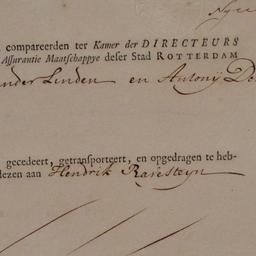 compareerden ter Kamer der DIRECTEURS
Assurantie Maatschappye deser Stad ROTTERDAM
nder Linden en Antonij De
gecedeert, getransporteert, en opgedragen te heb-
dezen aan Hendrik Ravesteyn